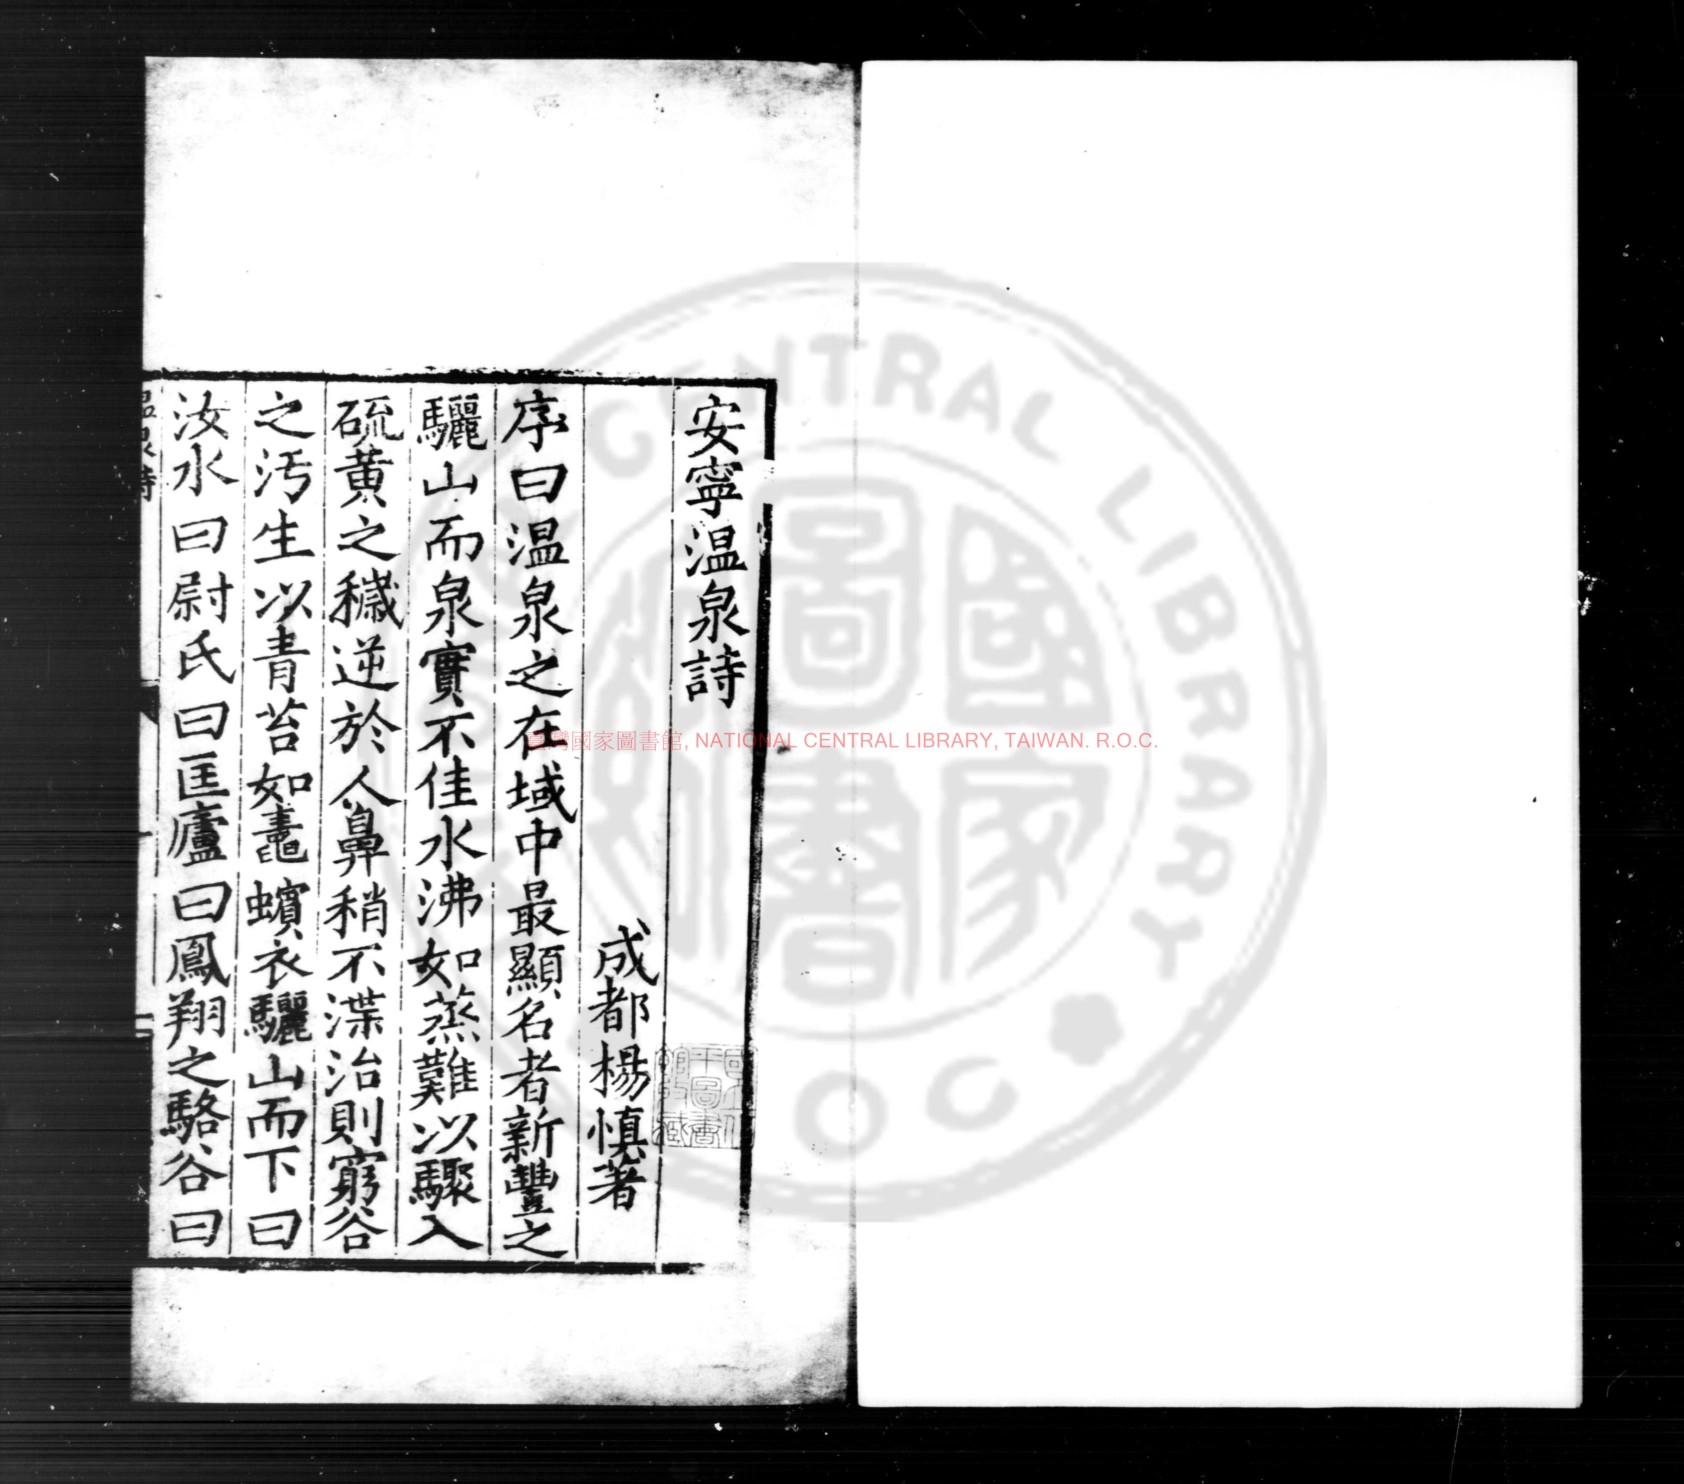 安寧温泉詩
成都楊慎著
序曰温泉之在域中最顯名者新豐之
驪山而泉實不佳水沸如蒸難以驟入
硫黄之穢逆於人鼻稍不渫治則窮谷
之汚生以青苔如鼃蠙衣驪山而下曰
汝水曰尉氏曰匡廬曰鳳翔之駱谷曰
温泉詩
臺灣國家圖書館, NATIONAL CENTRAL LIBRARY, TAIWAN. R.O.C.
CENTRAL LIBRARY
國家圖書